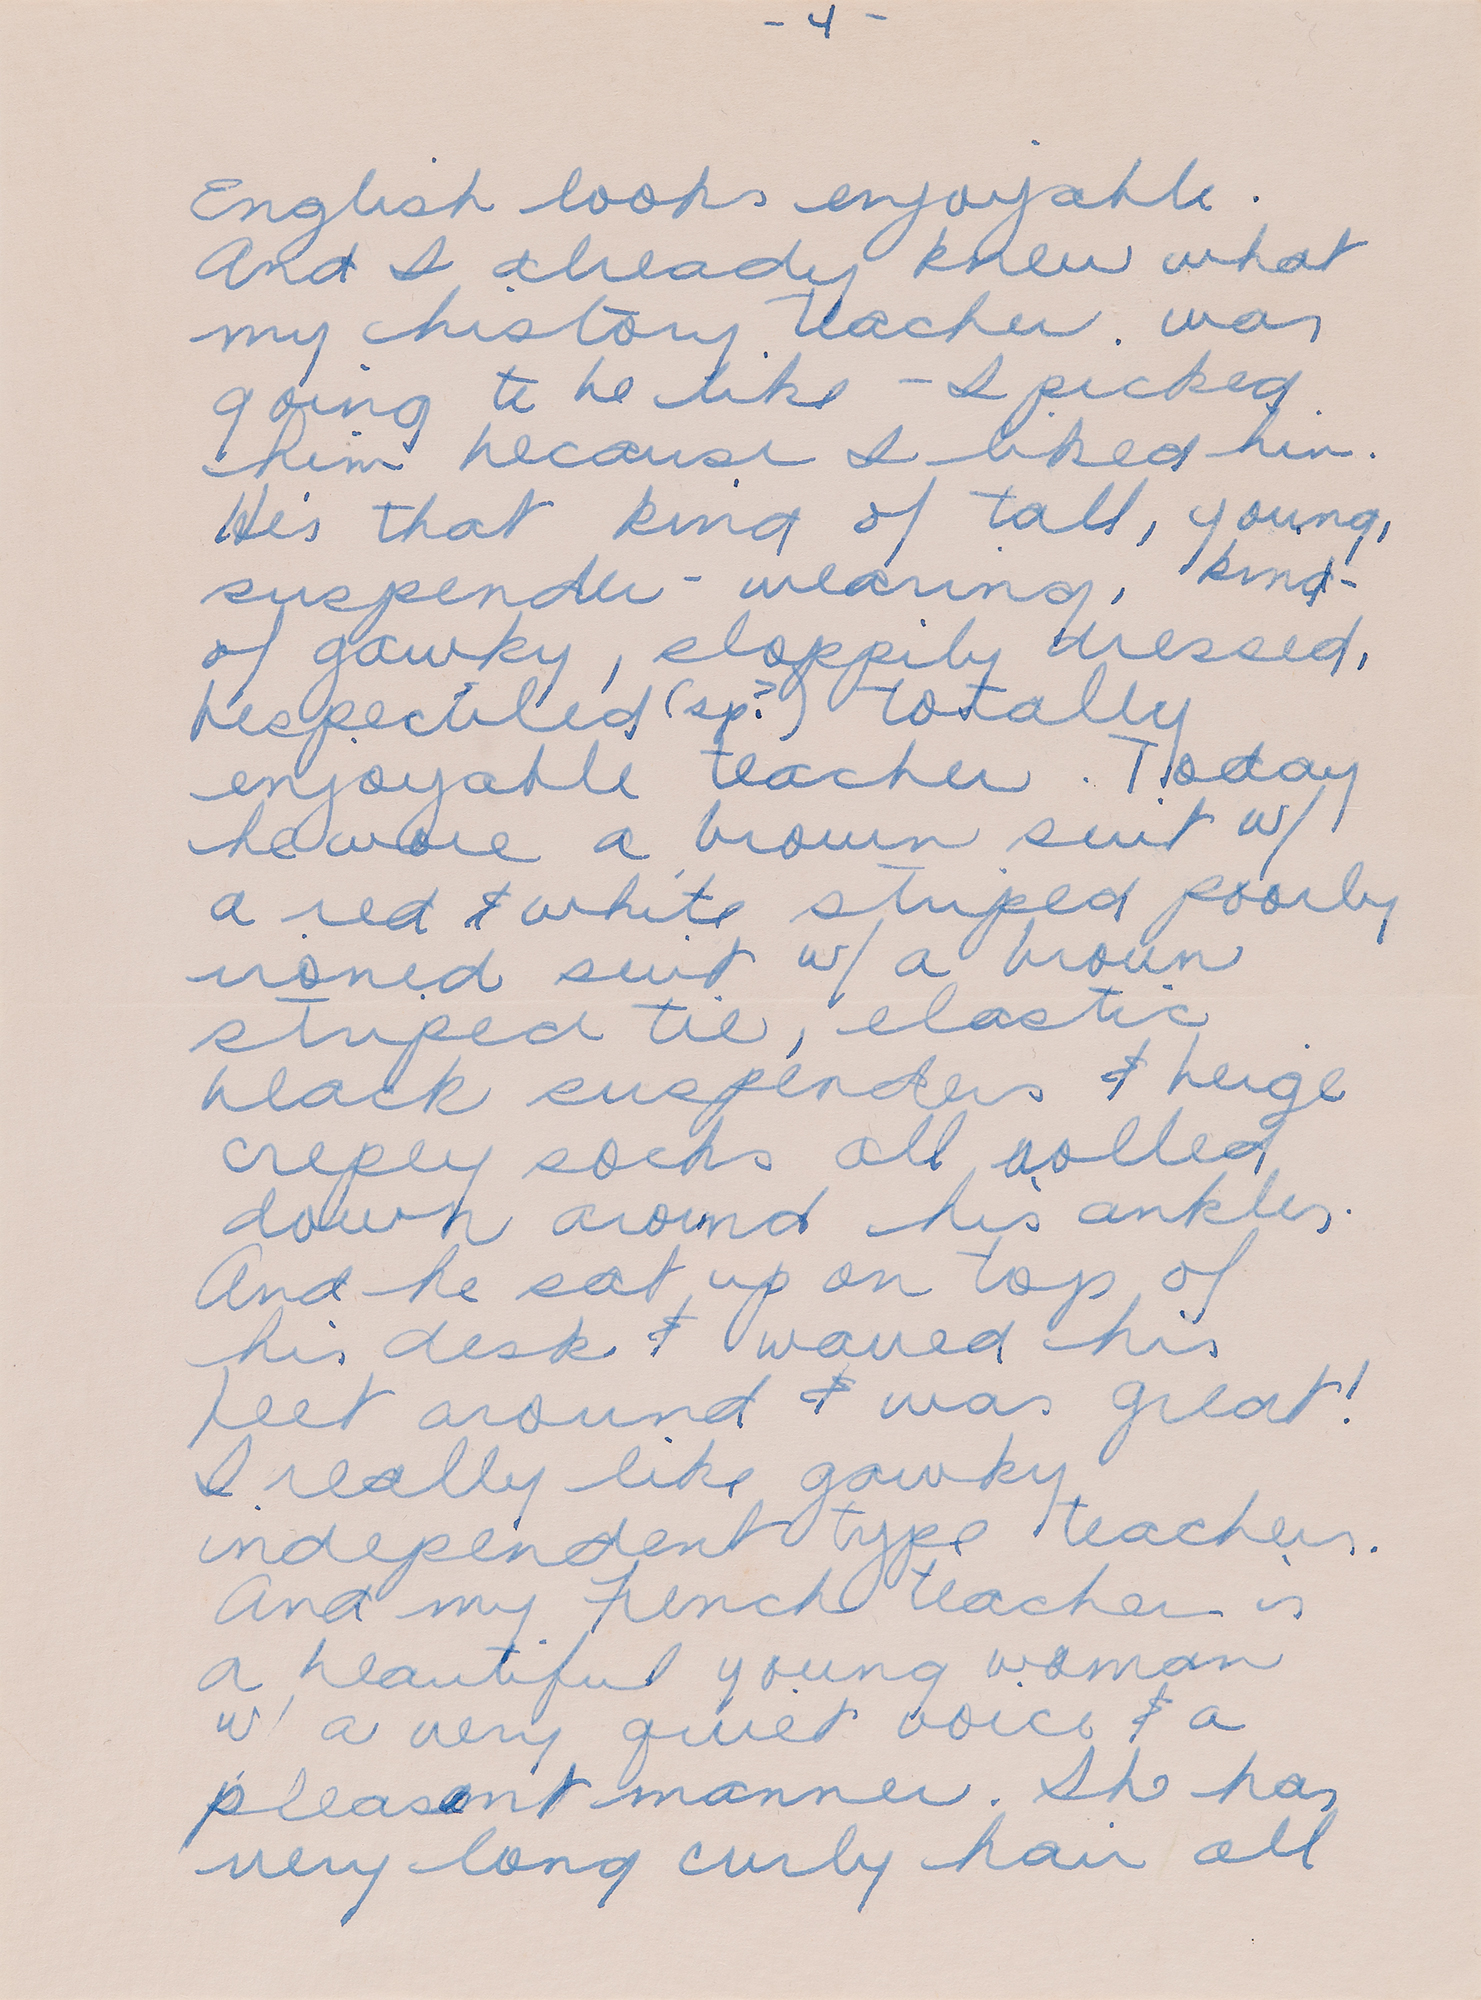 - 4 -
English looks enjoyable.
And I already knew what
my history teacher was
going to be like - I picked
him because I liked him.
He's that kind of tall, young,
suspender-wearing, kind-
of gawky, sloppily dressed,
bespectiled (sp?) totally
enjoyable teacher. Today
he wore a brown suit w/
a red & white striped poorly
ironed suit w/ a brown
striped tie, elastic
black suspenders & beige
crepey socks all rolled
down around his ankles.
And he sat up on top of
his desk & waved his
feet around & was great!
I really like gawky
independent type teachers.
And my French teacher is
a beautiful young woman
w/ a very quiet voice & a
pleasant manner. She has
very long curly hair all